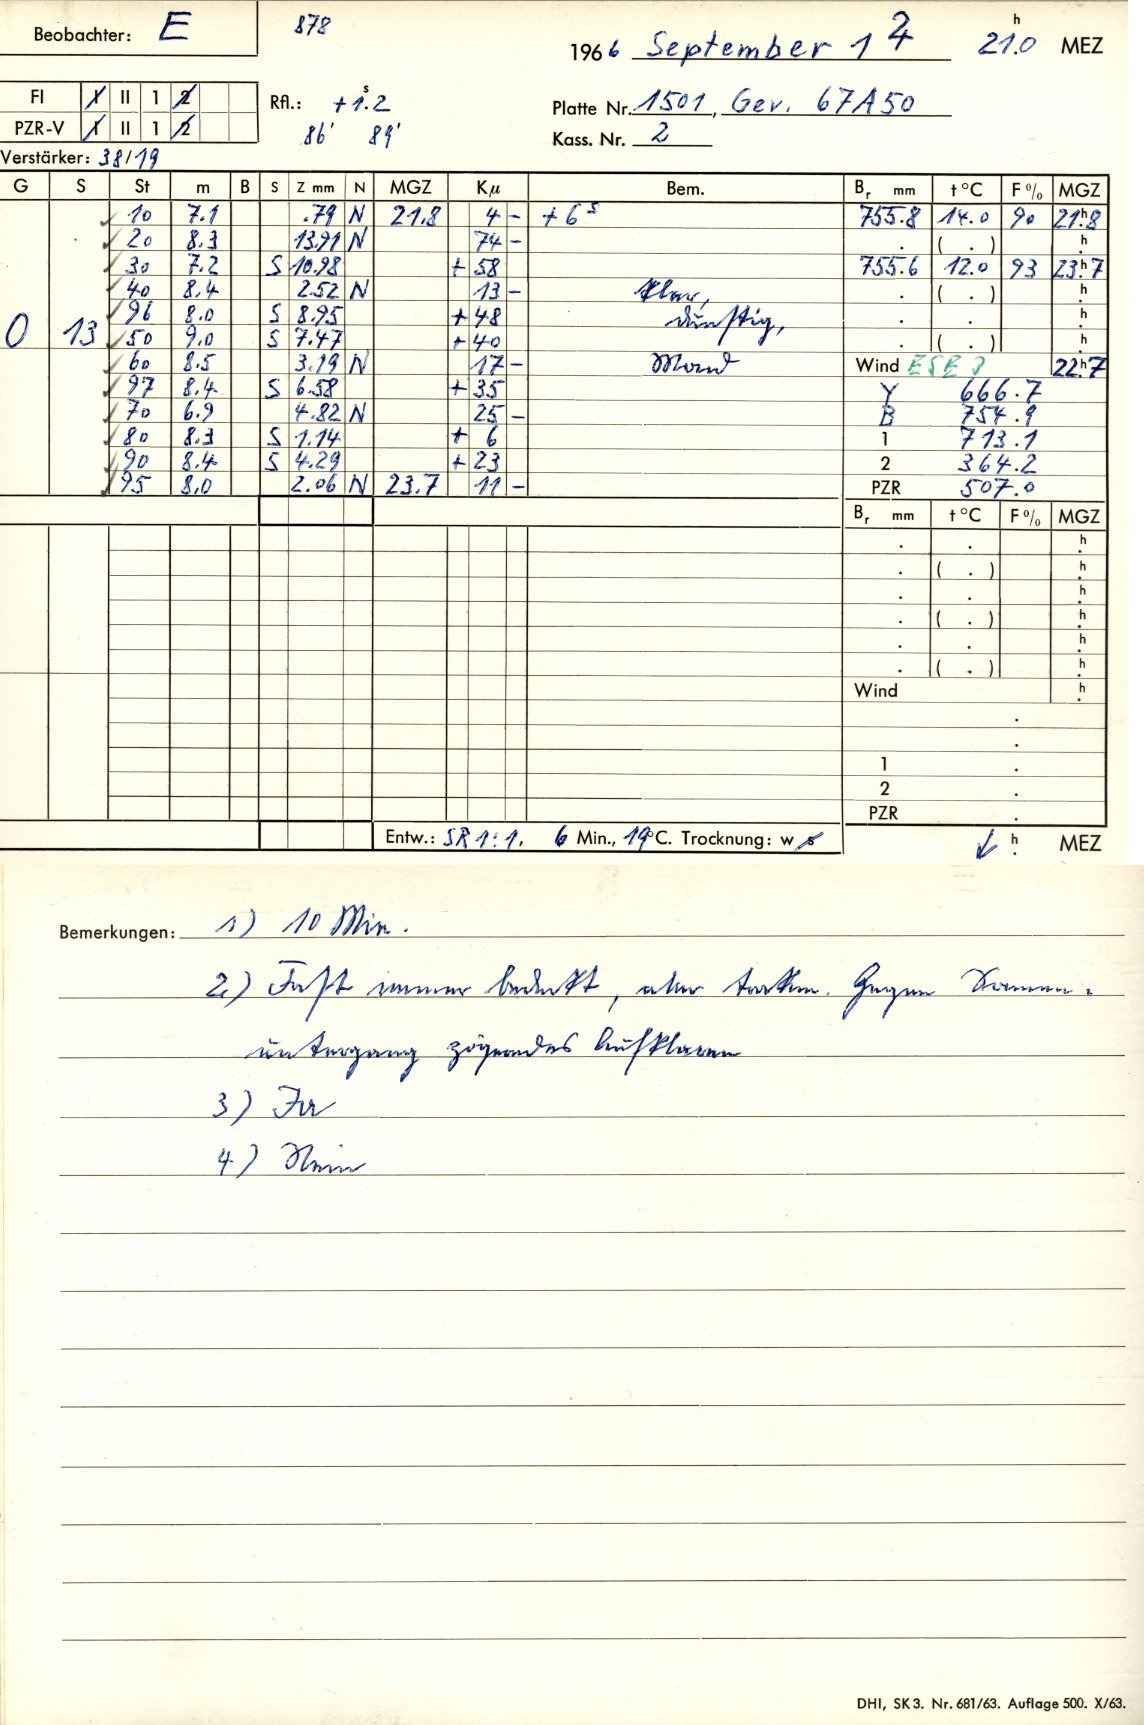 Beobachter: E
878
1966 September 1
21.0 h MEZ
FI I II 1 2
PZR-V I II 1 2
Rfl.: +1.2 s
86' 89'
Platte Nr. 1501, Gev. 67A50
Kass. Nr. 2
Verstärker: 38/19
G S St m B S Z mm N MGZ Kμ Bem. Br mm t °C F % MGZ
10 7.1 .79 N 21.8 4 - + 6 s 755.8 14.0 90 21 h 8
20 8.3 13.91 N 74 - . ( . ) h .
30 7.2 S 10.98 + 58 755.6 12.0 93 23 h 7
40 8.4 2.52 N 13 - klar, . ( . ) h .
96 8.0 S 8.95 + 48 dunstig, . . h .
0 13 50 9.0 S 7.47 + 40 . ( . ) h .
60 8.5 3.19 N 17 - Mond Wind ESE 22 h 7
97 8.4 S 6.58 + 35 Y 666.7
70 6.9 4.82 N 25 - B 754.9
80 8.3 S 1.14 + 6 1 713.1
90 8.4 S 4.29 + 23 2 364.2
95 8.0 2.06 N 23.7 11 - PZR 507.0
Br mm t °C F % MGZ
. . h .
. ( . ) h .
. . h .
. ( . ) h .
. . h .
. ( . ) h .
Wind h .
.
.
1 .
2 .
PZR .
Entw.: SR 1:1. 6 Min., 19 °C. Trocknung: w s
h . MEZ
Bemerkungen: 1) 10 Min.
2) Fast immer bedeckt, aber trocken. Gegen Sonnen-
untergang zögerndes Aufklaren
3) Ja
4) Nein
DHI, SK 3. Nr. 681/63. Auflage 500. X/63.